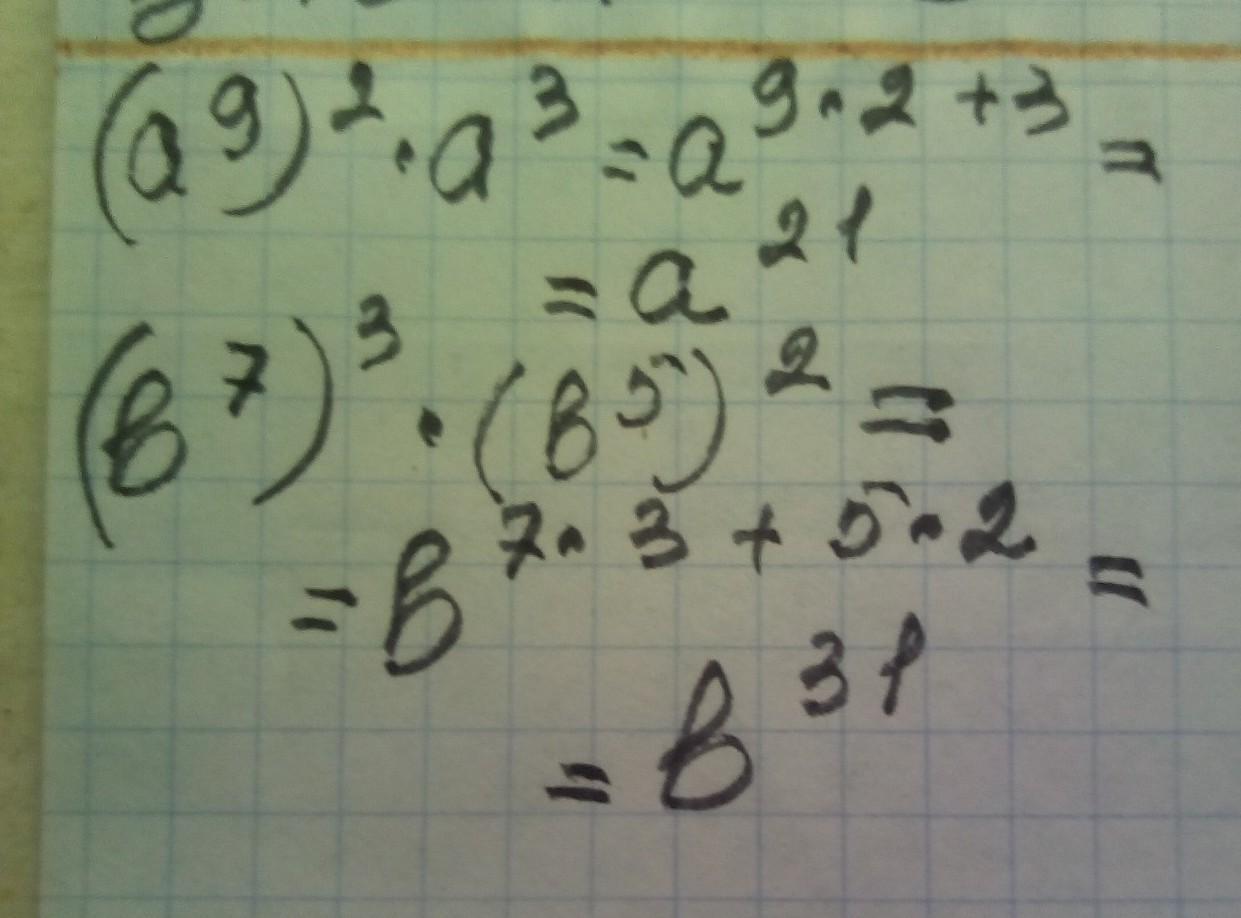 (a⁹)² · a³ = a⁹·²⁺³ =
= a²¹
(в⁷)³ · (в⁵)² =
= в⁷·³⁺⁵·² =
= в³¹